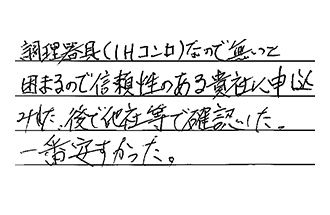 調理器具(IHコンロ)なので無いと
困まるので信頼性のある貴社へ申込
みした、後で他社等で確認した。
一番安すかった。